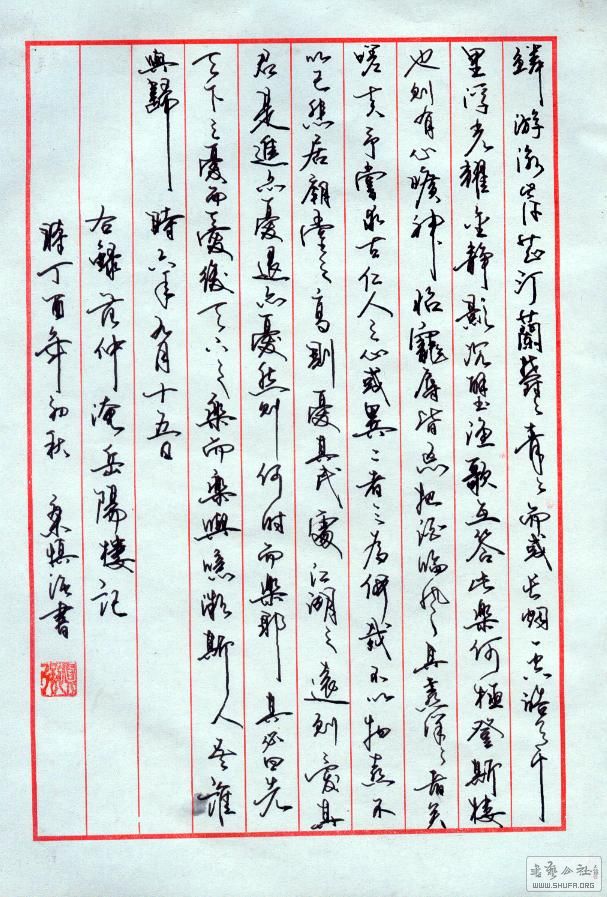 鱗游泳岸芷汀蘭鬱々青々而或長烟一空皓月千
里浮光耀金靜影沉璧漁歌互答此樂何極登斯樓
也則有心曠神怡寵辱皆忘把酒臨風其喜洋々者矣
嗟夫予嘗求古仁人之心或異二者之為何哉不以物喜不
以己悲居廟堂之高則憂其民處江湖之遠則憂其
君是進亦憂退亦憂然則何時而樂耶其必曰先
天下之憂而憂後天下之樂而樂與噫微斯人吾誰
與歸時六年九月十五日
右錄范仲淹岳陽樓記
時丁酉年初秋 書
書藝公社
WWW.SHUFA.ORG